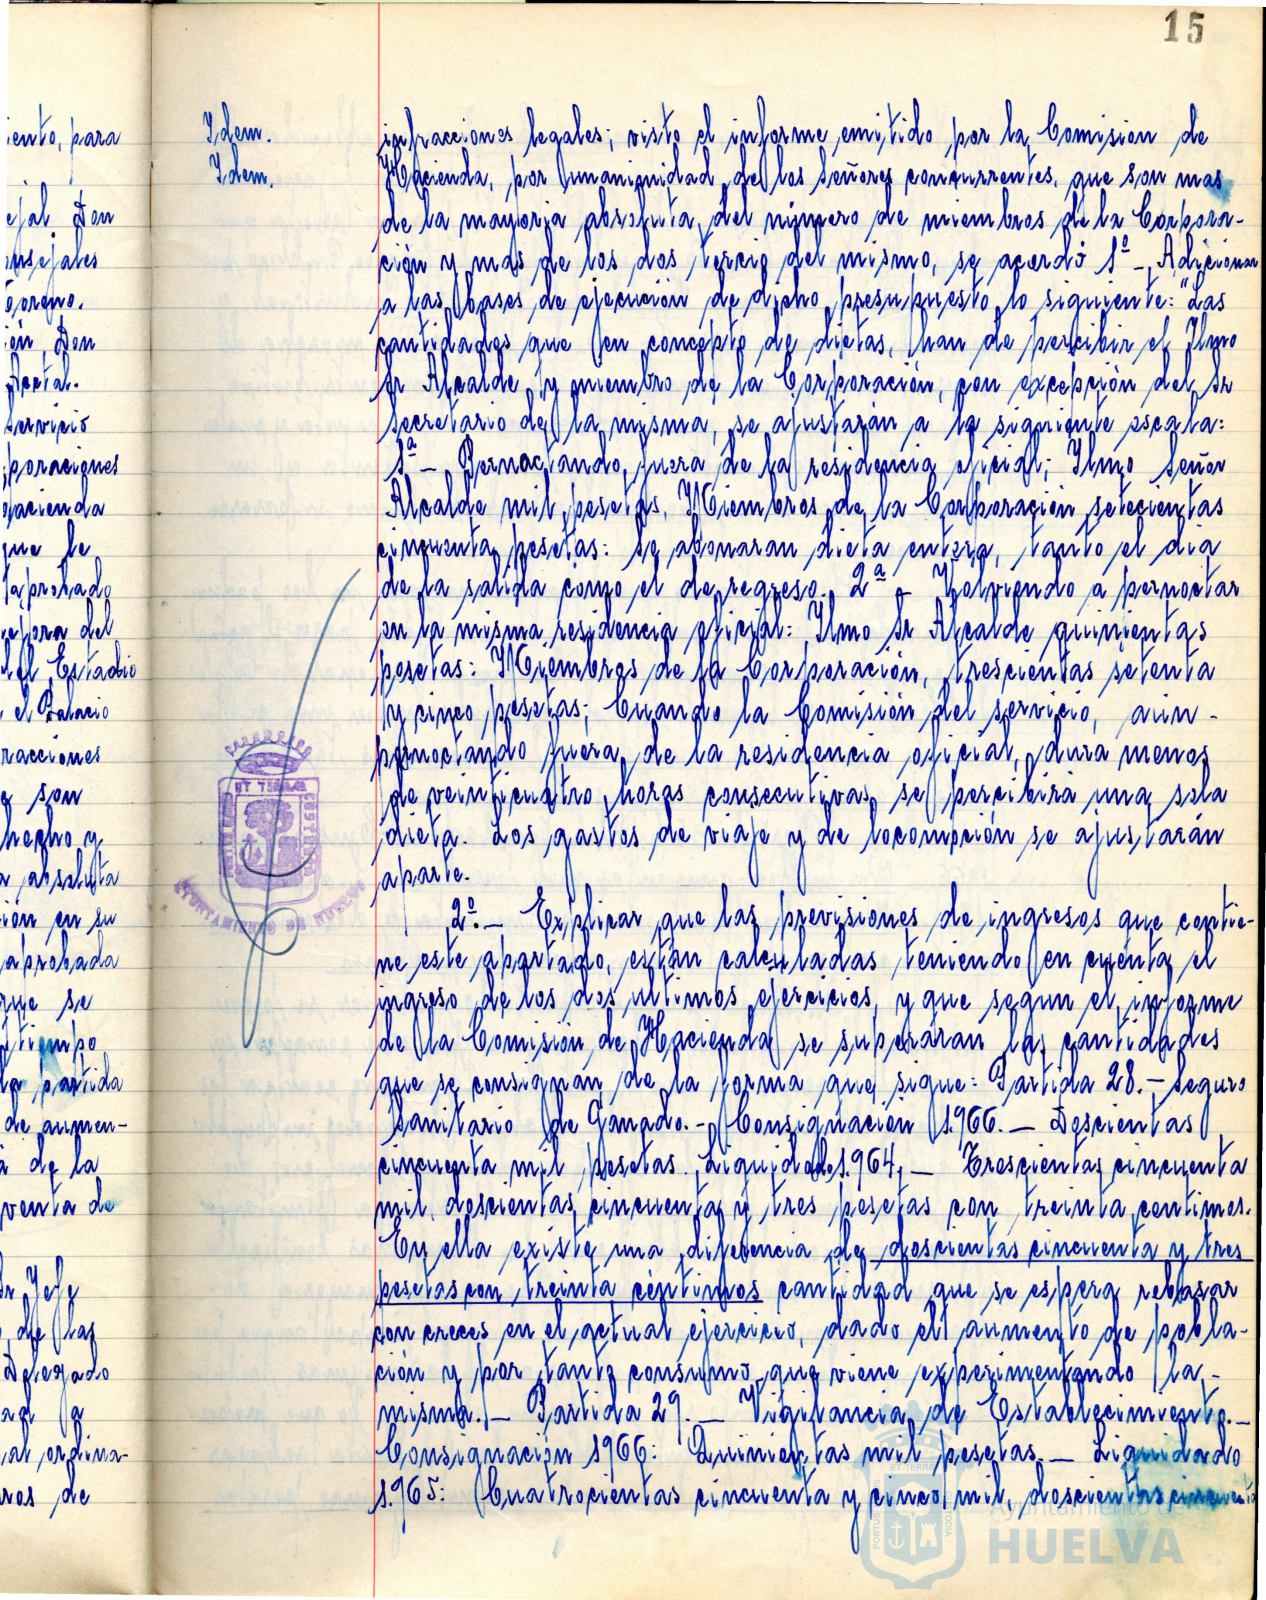 15
iento, para
ejal Don
onsejales
oreno.
ión, Don
Acctal.
servicio
poraciones
acienda
que le
aprobado
epora del
del Estadio
el Palacio
racciones
son
hecho y
absoluta
ión en su
aprobada
que se
tiempo
la partida
de aumen-
a de la
venta de
Sr Jefe
de las
Delegado
ad a
al ordina-
ros de
Idem.
Idem.
infracciones legales; visto el informe emitido por la Comisión de
Hacienda, por unanimidad de los Señores concurrentes, que son mas
de la mayoria absoluta del número de miembros de la Corpora-
ción y mas de los dos tercio del mismo, se acordó 1º - Adicionar
a las bases de ejecución de dicho presupuesto lo siguiente: "Las
cantidades que en concepto de dietas, han de percibir el Ilmo
Sr Alcalde y miembro de la Corporación, con excepción del Sr
secretario de la misma, se ajustarán a la siguiente escala:
1ª - Pernoctando fuera de la residencia oficial; Ilmo Señor
Alcalde mil pesetas, Miembros de la Corporación setecientas
cincuenta pesetas: se abonaran dieta entera, tanto el dia
de la salida como el de regreso. 2ª - Volviendo a pernoctar
en la misma residencia oficial: Ilmo Sr Alcalde quinientas
pesetas: Miembros de la Corporación, trescientas setenta
y cinco pesetas; Cuando la Comisión del servicio, aún -
pernoctando fuera de la residencia oficial, dura menos
de veinticuatro horas consecutivas se percibirá una sola
dieta. Los gastos de viaje y de locomoción se ajustarán
aparte.
2º.- Explicar que las previsiones de ingresos que contie-
ne este apartado, están calculadas teniendo en cuenta el
ingreso de los dos ultimos ejercicios, y que segun el informe
de la Comisión de Hacienda se superarán las cantidades
que se consignan de la forma que sigue: Partida 28.- Seguro
Sanitario de Ganado.- Consignación 1.966.- Doscientas
cincuenta mil pesetas. Liquidado 1.964.- Trescientas cincuenta
mil doscientas cincuenta y tres pesetas con treinta centimos.
En ella existe una diferencia de doscientas cincuenta y tres
pesetas con treinta céntimos cantidad que se espera rebasar
con creces en el actual ejercicio, dado el aumento de pobla-
ción y por tanto consumo que viene experimentando la -
misma.- Partida 29.- Vigilancia de Establecimiento.-
Consignación 1966: Quinientas mil pesetas.- Liquidado
1.965: Cuatrocientas cincuenta y cinco mil, doscientas cincuenta
ET TERRAE
AYUNTAMIENTO DE HUELVA
Ayuntamiento de
HUELVA